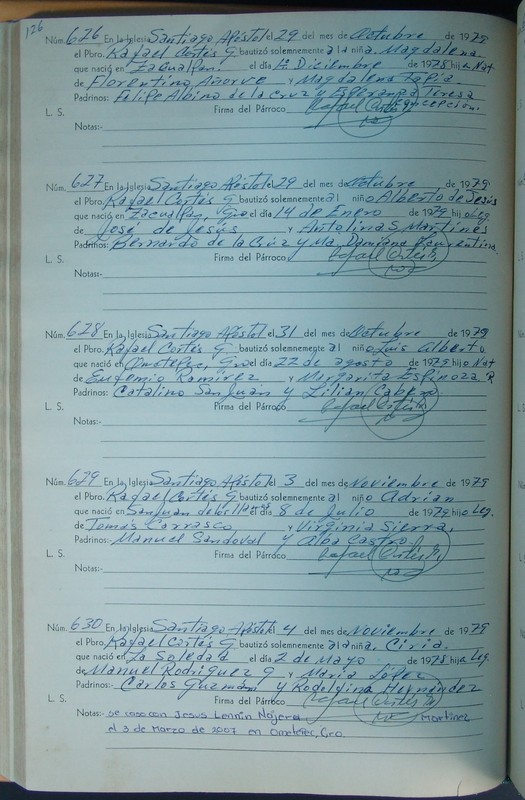 126
Núm. 626 En la Iglesia Santiago Apóstol el 29 del mes de Octubre de 1979
el Pbro. Rafael Cortés G. bautizó solemnemente a la niña Magdalena
que nació en Zacualpan. el día 1º Diciembre de 1978 hija Nat
de Florentino Añorve y Magdalena Tapia
Padrinos: Felipe Albino de la Cruz y Esperanza Teresa
L. S. Firma del Párroco Rafael Cortés G. Concepción.
Notas:-
Núm. 627 En la Iglesia Santiago Apóstol el 29 del mes de Octubre de 1979
el Pbro. Rafael Cortés G. bautizó solemnemente al niño Alberto de Jesús
que nació en Zacualpan, Gro el día 14 de Enero de 1979 hijo Leg.
de José de Jesús y Antolina S. Martines
Padrinos: Bernardo de la Cruz y Ma. Damiana Laurentina.
L. S. Firma del Párroco Rafael Cortés G.
Notas:-
Núm. 628 En la Iglesia Santiago Apóstol el 31 del mes de Octubre de 1979
el Pbro. Rafael Cortés G bautizó solemnemente al niño Luis Alberto
que nació en Ometepec, Gro el día 22 de agosto de 1979 hijo Nat
de Eufemio Ramirez y Margarita Espinoza R
Padrinos: Catalino San Juan y Lilian Cabrera
L. S. Firma del Párroco Rafael Cortés G.
Notas:-
Núm. 629 En la Iglesia Santiago Apóstol el 3 del mes de Noviembre de 1979
el Pbro. Rafael Cortés G bautizó solemnemente al niño Adrian
que nació en San Juan de los Llanos el día 8 de Julio de 1979 hijo Leg.
de Tomás Carrasco y Virginia Sierra,
Padrinos:- Manuel Sandoval y Alba Castro
L. S. Firma del Párroco Rafael Cortés G.
Notas:-
Núm. 630 En la Iglesia Santiago Apóstol el 4 del mes de Noviembre de 1979
el Pbro. Rafael Cortés G bautizó solemnemente a la niña, Ciria.
que nació en La Soledad el día 2 de Mayo de 1978 hija Leg
de Manuel Rodriguez G y Maria López
Padrinos:- Carlos Guzmán y Rodolfina Hernández
L. S. Firma del Párroco Rafael Cortés G.
Notas:- Se caso con Jesus Lennin Nájera Martinez
el 3 de Marzo de 2007 en Ometepec, Gro.